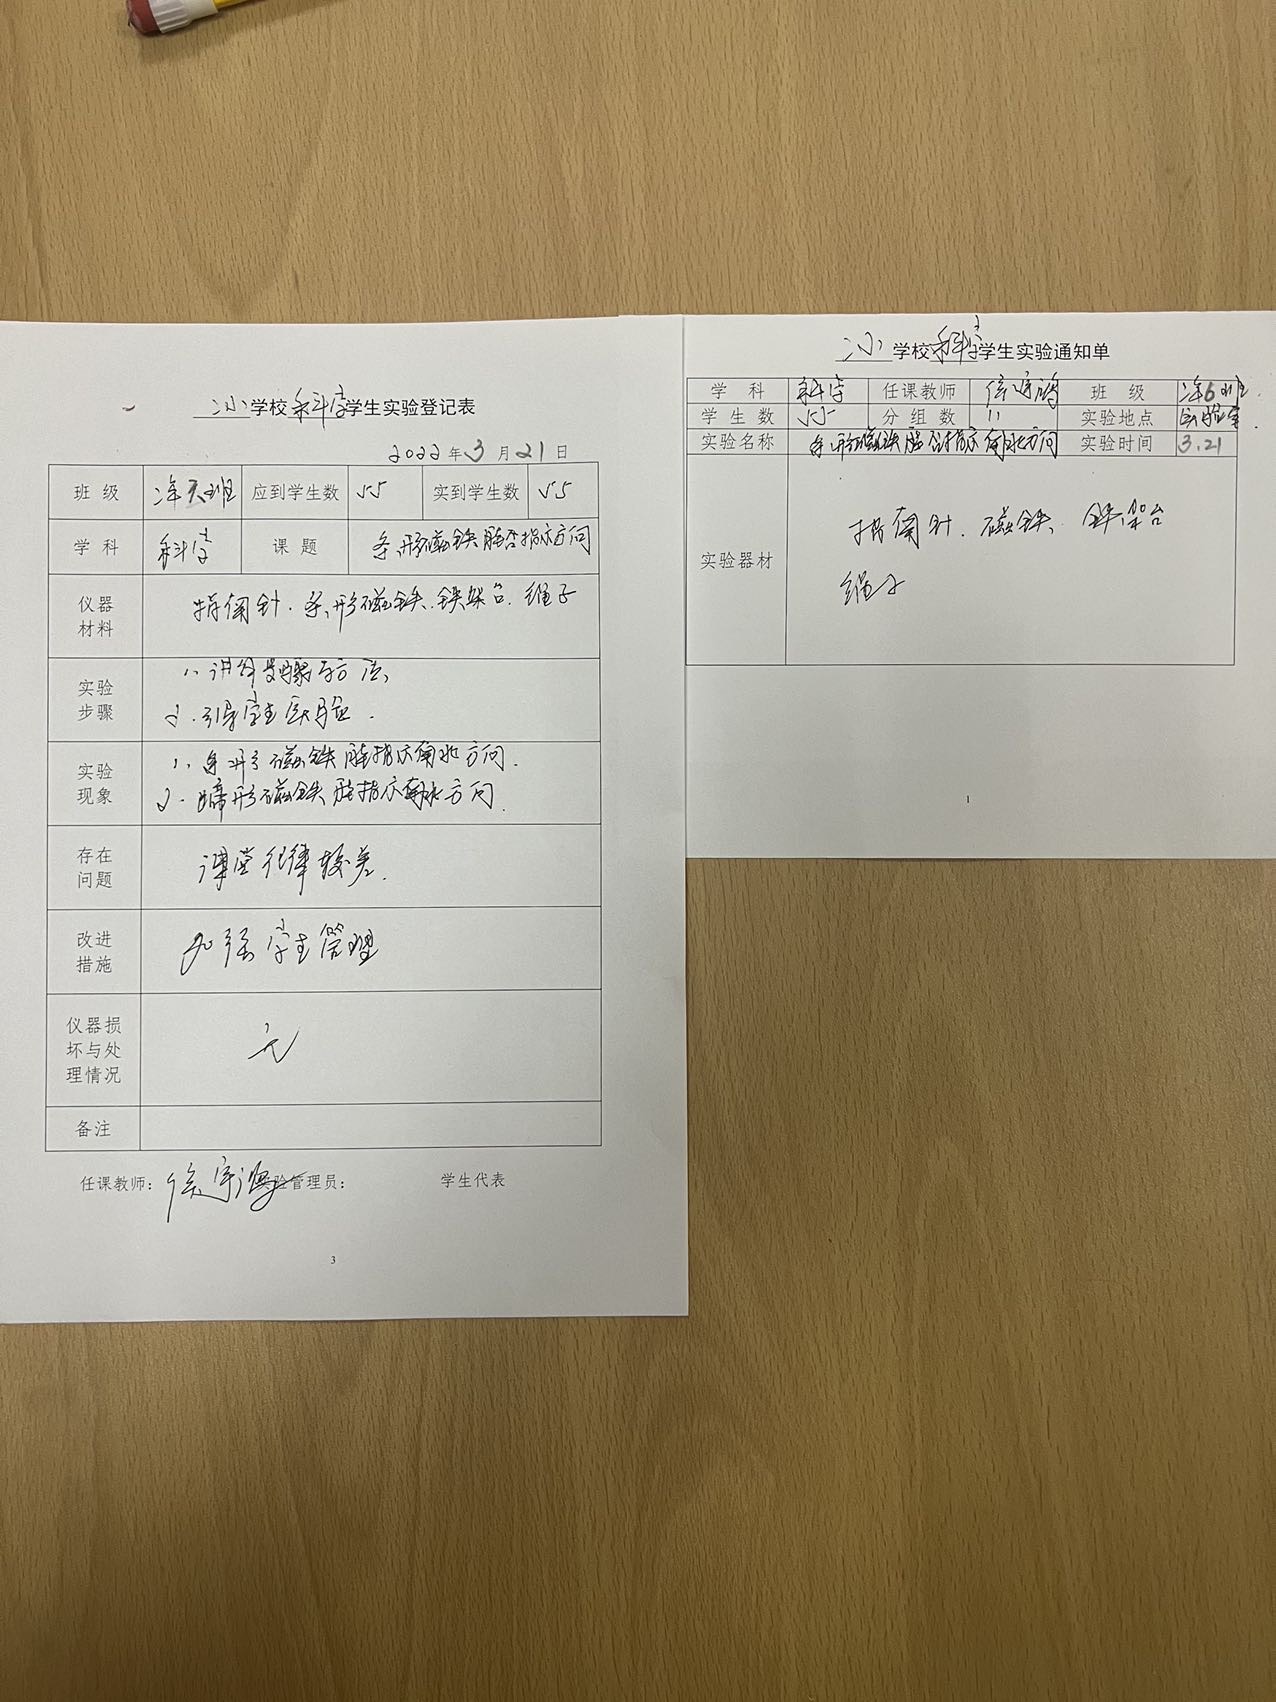 二小学校科学学生实验登记表
2022年3月21日
班级 二年六班 应到学生数 55 实到学生数 55
学科 科学 课题 条形磁铁能否指示方向
仪器材料 指南针.条形磁铁.铁架台.绳子
实验步骤 1、讲解步骤与方法,
2.引导学生实验.
实验现象 1、条形磁铁能指示南北方向.
2.蹄形磁铁能指示南北方向.
存在问题 课堂纪律较差.
改进措施 加强学生管理
仪器损坏与处理情况 无
备注
任课教师: 实验管理员: 学生代表
3
二小学校科学学生实验通知单
学科 科学 任课教师 班级 二年6班
学生数 55 分组数 11 实验地点 实验室
实验名称 条形磁铁能否指示南北方向 实验时间 3.21
实验器材 指南针.磁铁、铁架台
绳子
1